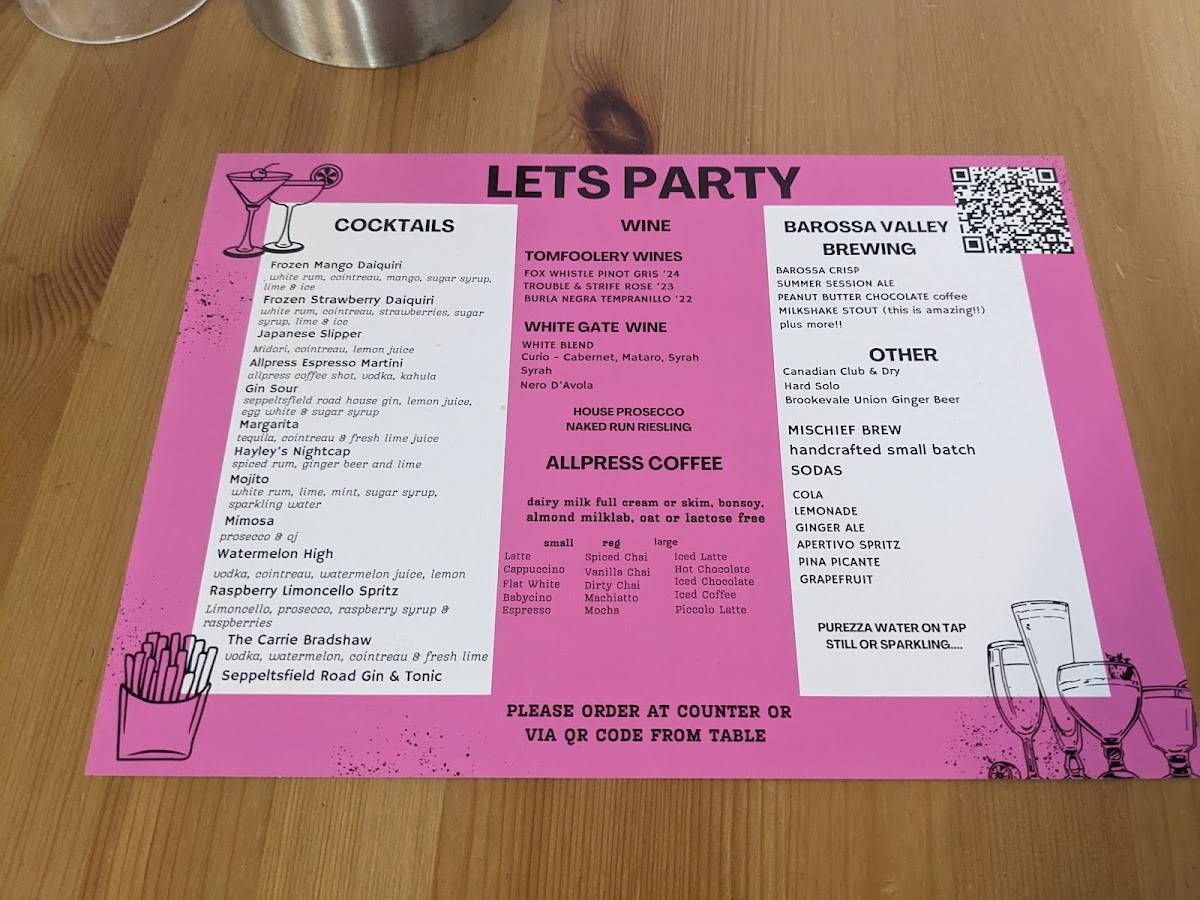 LETS PARTY
COCKTAILS
Frozen Mango Daiquiri
white rum, cointreau, mango, sugar syrup,
lime & ice
Frozen Strawberry Daiquiri
white rum, cointreau, strawberries, sugar
syrup, lime & ice
Japanese Slipper
Midori, cointreau, lemon juice
Allpress Espresso Martini
allpress coffee shot, vodka, kahula
Gin Sour
seppeltsfield road house gin, lemon juice,
egg white & sugar syrup
Margarita
tequila, cointreau & fresh lime juice
Hayley's Nightcap
spiced rum, ginger beer and lime
Mojito
white rum, lime, mint, sugar syrup,
sparkling water
Mimosa
prosecco & oj
Watermelon High
vodka, cointreau, watermelon juice, lemon
Raspberry Limoncello Spritz
Limoncello, prosecco, raspberry syrup &
raspberries
The Carrie Bradshaw
vodka, watermelon, cointreau & fresh lime
Seppeltsfield Road Gin & Tonic
WINE
TOMFOOLERY WINES
FOX WHISTLE PINOT GRIS '24
TROUBLE & STRIFE ROSE '23
BURLA NEGRA TEMPRANILLO '22
WHITE GATE WINE
WHITE BLEND
Curio - Cabernet, Mataro, Syrah
Syrah
Nero D'Avola
HOUSE PROSECCO
NAKED RUN RIESLING
ALLPRESS COFFEE
dairy milk full cream or skim, bonsoy,
almond milklab, oat or lactose free
small reg large
Latte Spiced Chai Iced Latte
Cappuccino Vanilla Chai Hot Chocolate
Flat White Dirty Chai Iced Chocolate
Babycino Machiatto Iced Coffee
Espresso Mocha Piccolo Latte
BAROSSA VALLEY
BREWING
BAROSSA CRISP
SUMMER SESSION ALE
PEANUT BUTTER CHOCOLATE coffee
MILKSHAKE STOUT (this is amazing!!)
plus more!!
OTHER
Canadian Club & Dry
Hard Solo
Brookevale Union Ginger Beer
MISCHIEF BREW
handcrafted small batch
SODAS
COLA
LEMONADE
GINGER ALE
APERTIVO SPRITZ
PINA PICANTE
GRAPEFRUIT
PUREZZA WATER ON TAP
STILL OR SPARKLING....
PLEASE ORDER AT COUNTER OR
VIA QR CODE FROM TABLE